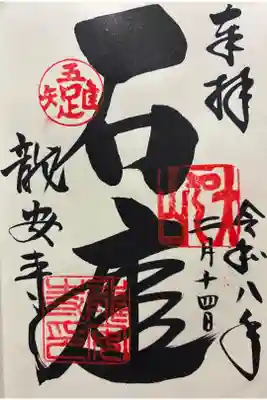 奉拝
令和八年
七月十四日
大雲山
石庭
吾唯足知
龍安寺